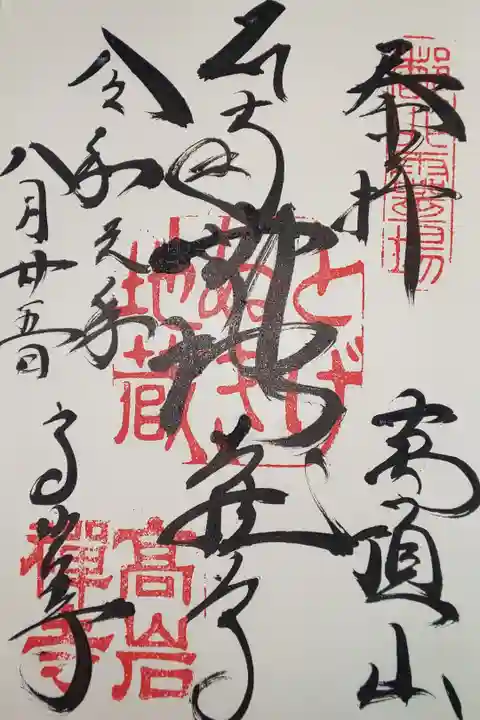 奉拝
萬頂山
霊場
地蔵尊
とげ
ぬき
地蔵
令和元年
八月廿五日
高岩寺
高岩
禪寺